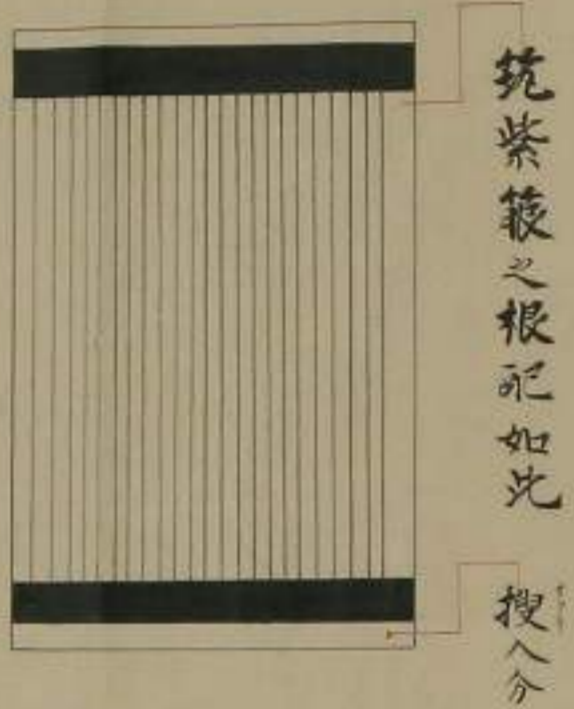 筑紫箙之根配如此
捜入分